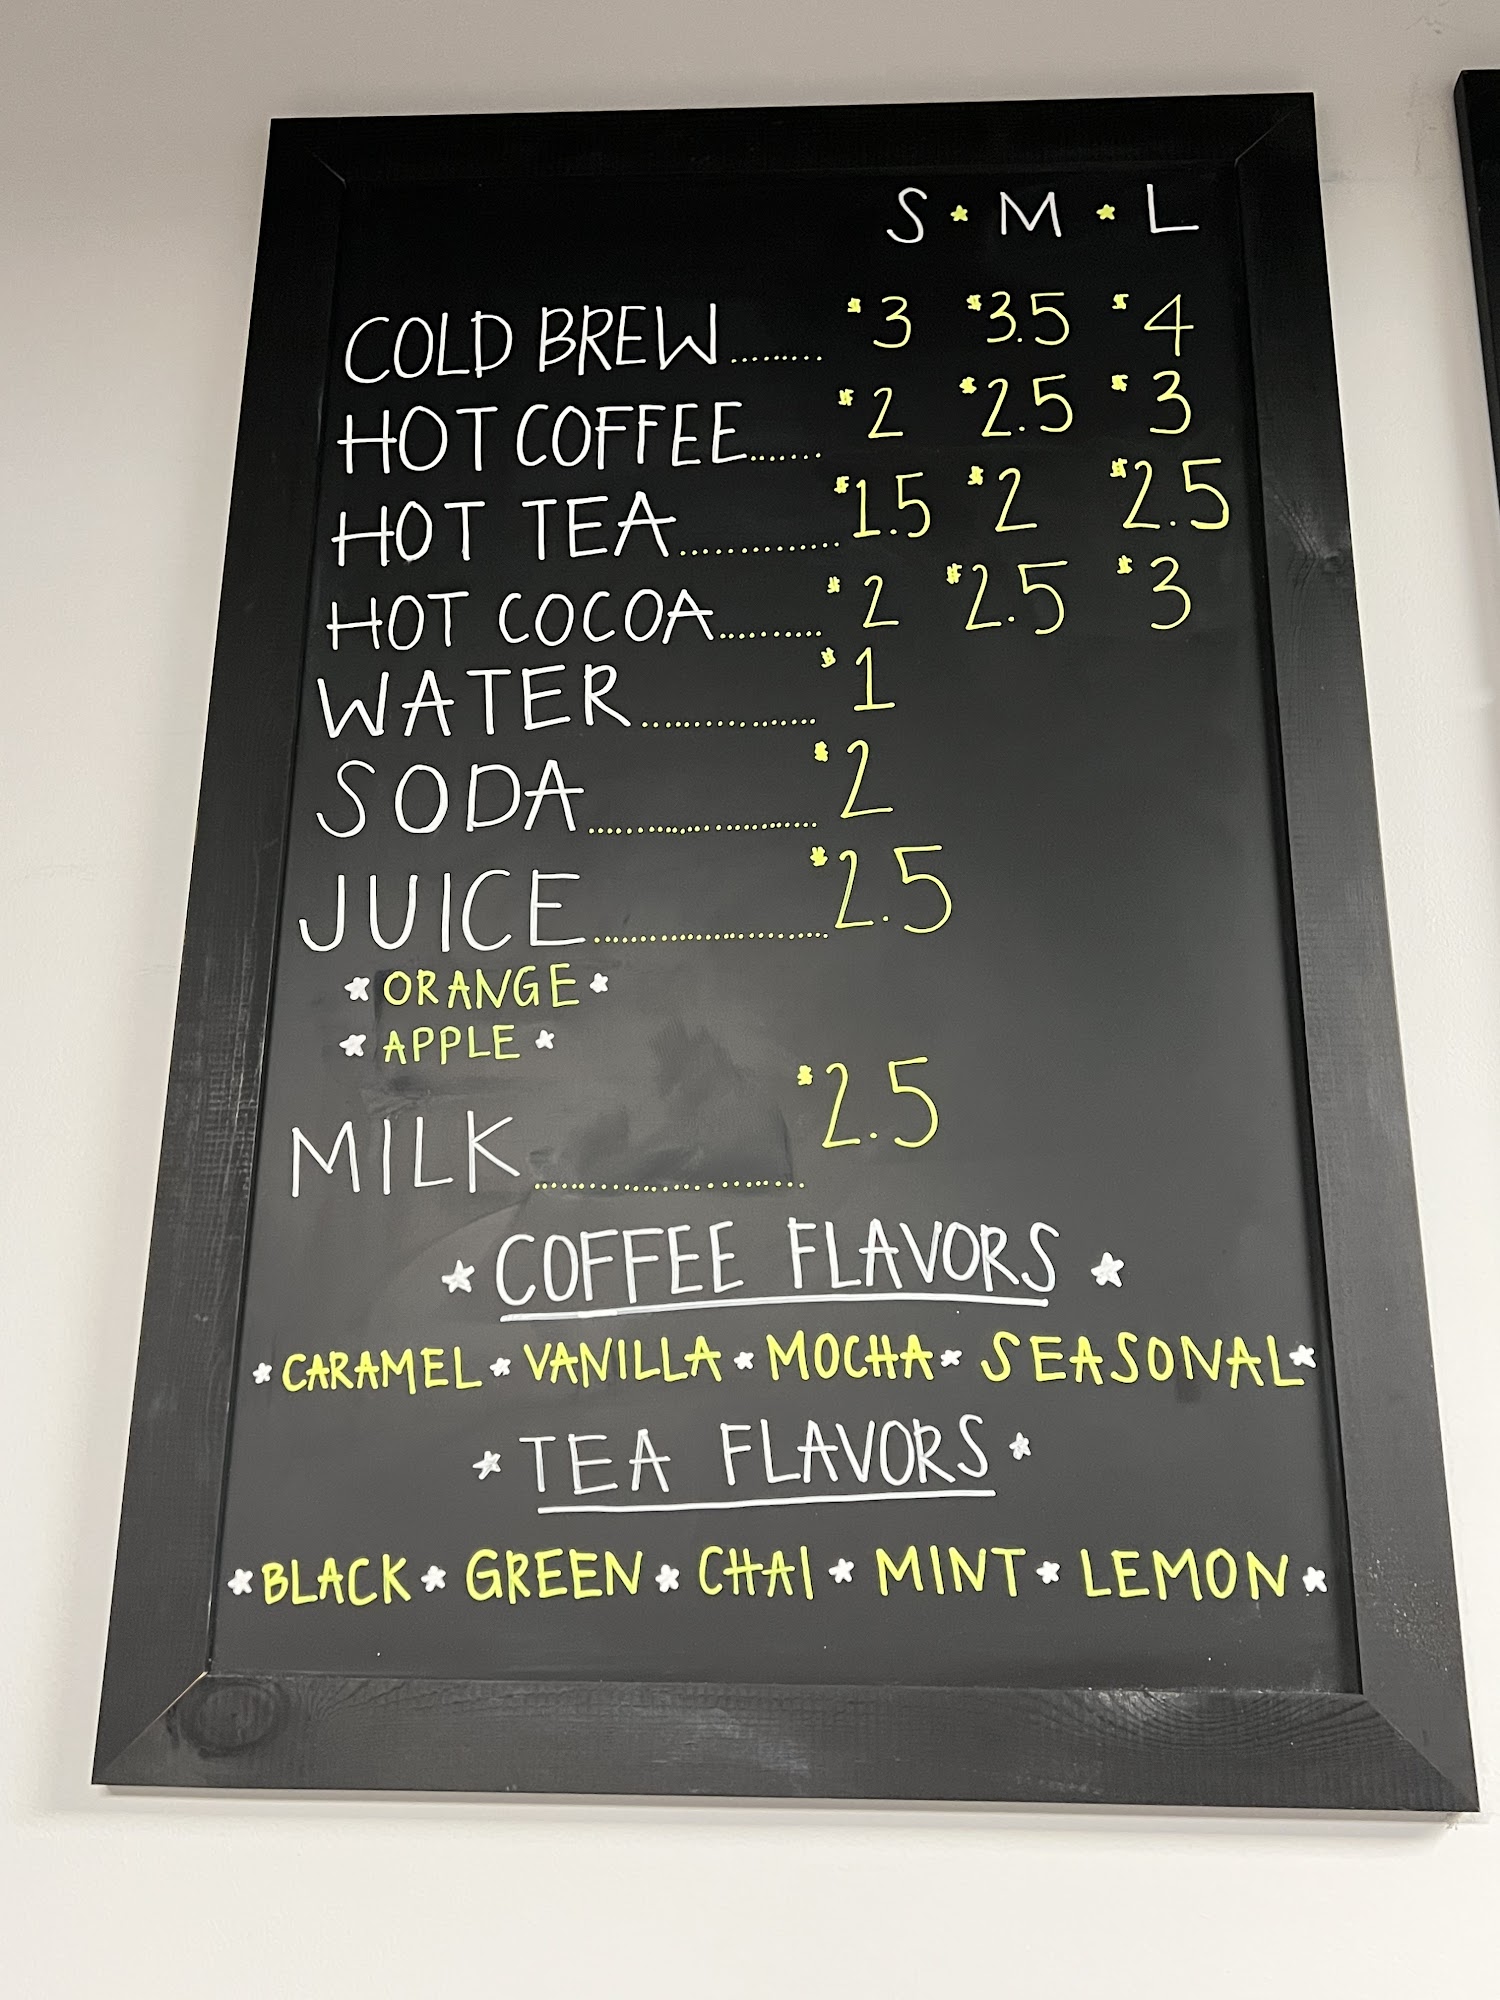 S M L
COLD BREW........ $3 $3.5 $4
HOT COFFEE....... $2 $2.5 $3
HOT TEA............. $1.5 $2 $2.5
HOT COCOA.......... $2 $2.5 $3
WATER................ $1
SODA....................... $2
JUICE....................... $2.5
ORANGE
APPLE
MILK........................ $2.5
COFFEE FLAVORS
CARAMEL VANILLA MOCHA SEASONAL
TEA FLAVORS
BLACK GREEN CHAI MINT LEMON